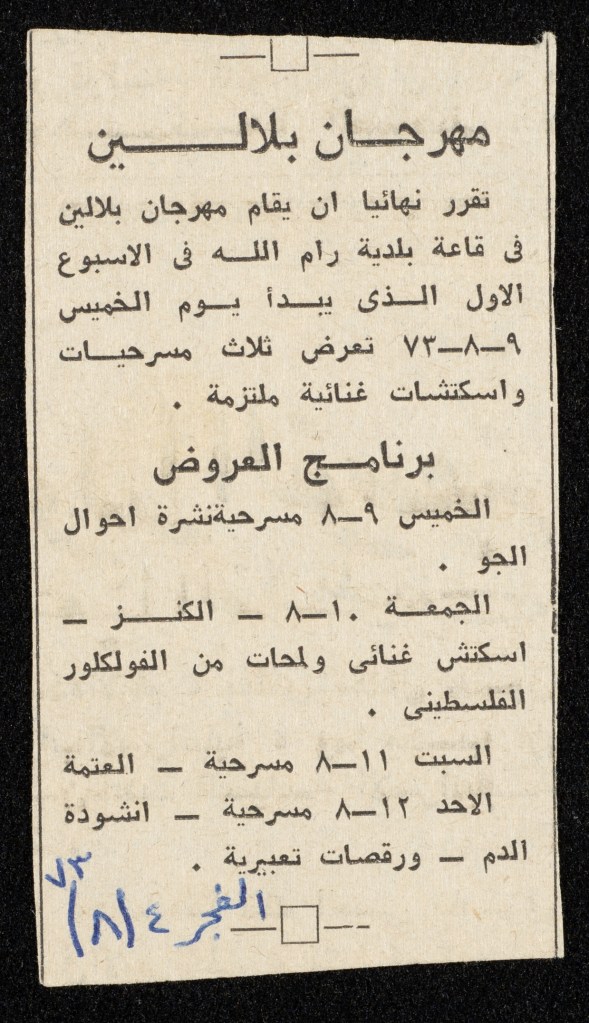 مهرجان بلالين
تقرر نهائيا ان يقام مهرجان بلالين
فى قاعة بلدية رام الله فى الاسبوع
الاول الذى يبدأ يوم الخميس
٩-٨-٧٣ تعرض ثلاث مسرحيات
واسكتشات غنائية ملتزمة .
برنامج العروض
الخميس ٩-٨ مسرحيةنشرة احوال
الجو .
الجمعة ١٠-٨ - الكنز -
اسكتش غنائى ولمحات من الفولكلور
الفلسطينى .
السبت ١١-٨ مسرحية - العتمة
الاحد ١٢-٨ مسرحية - انشودة
الدم - ورقصات تعبيرية .
الفجر ٤ (٨) ٧٣